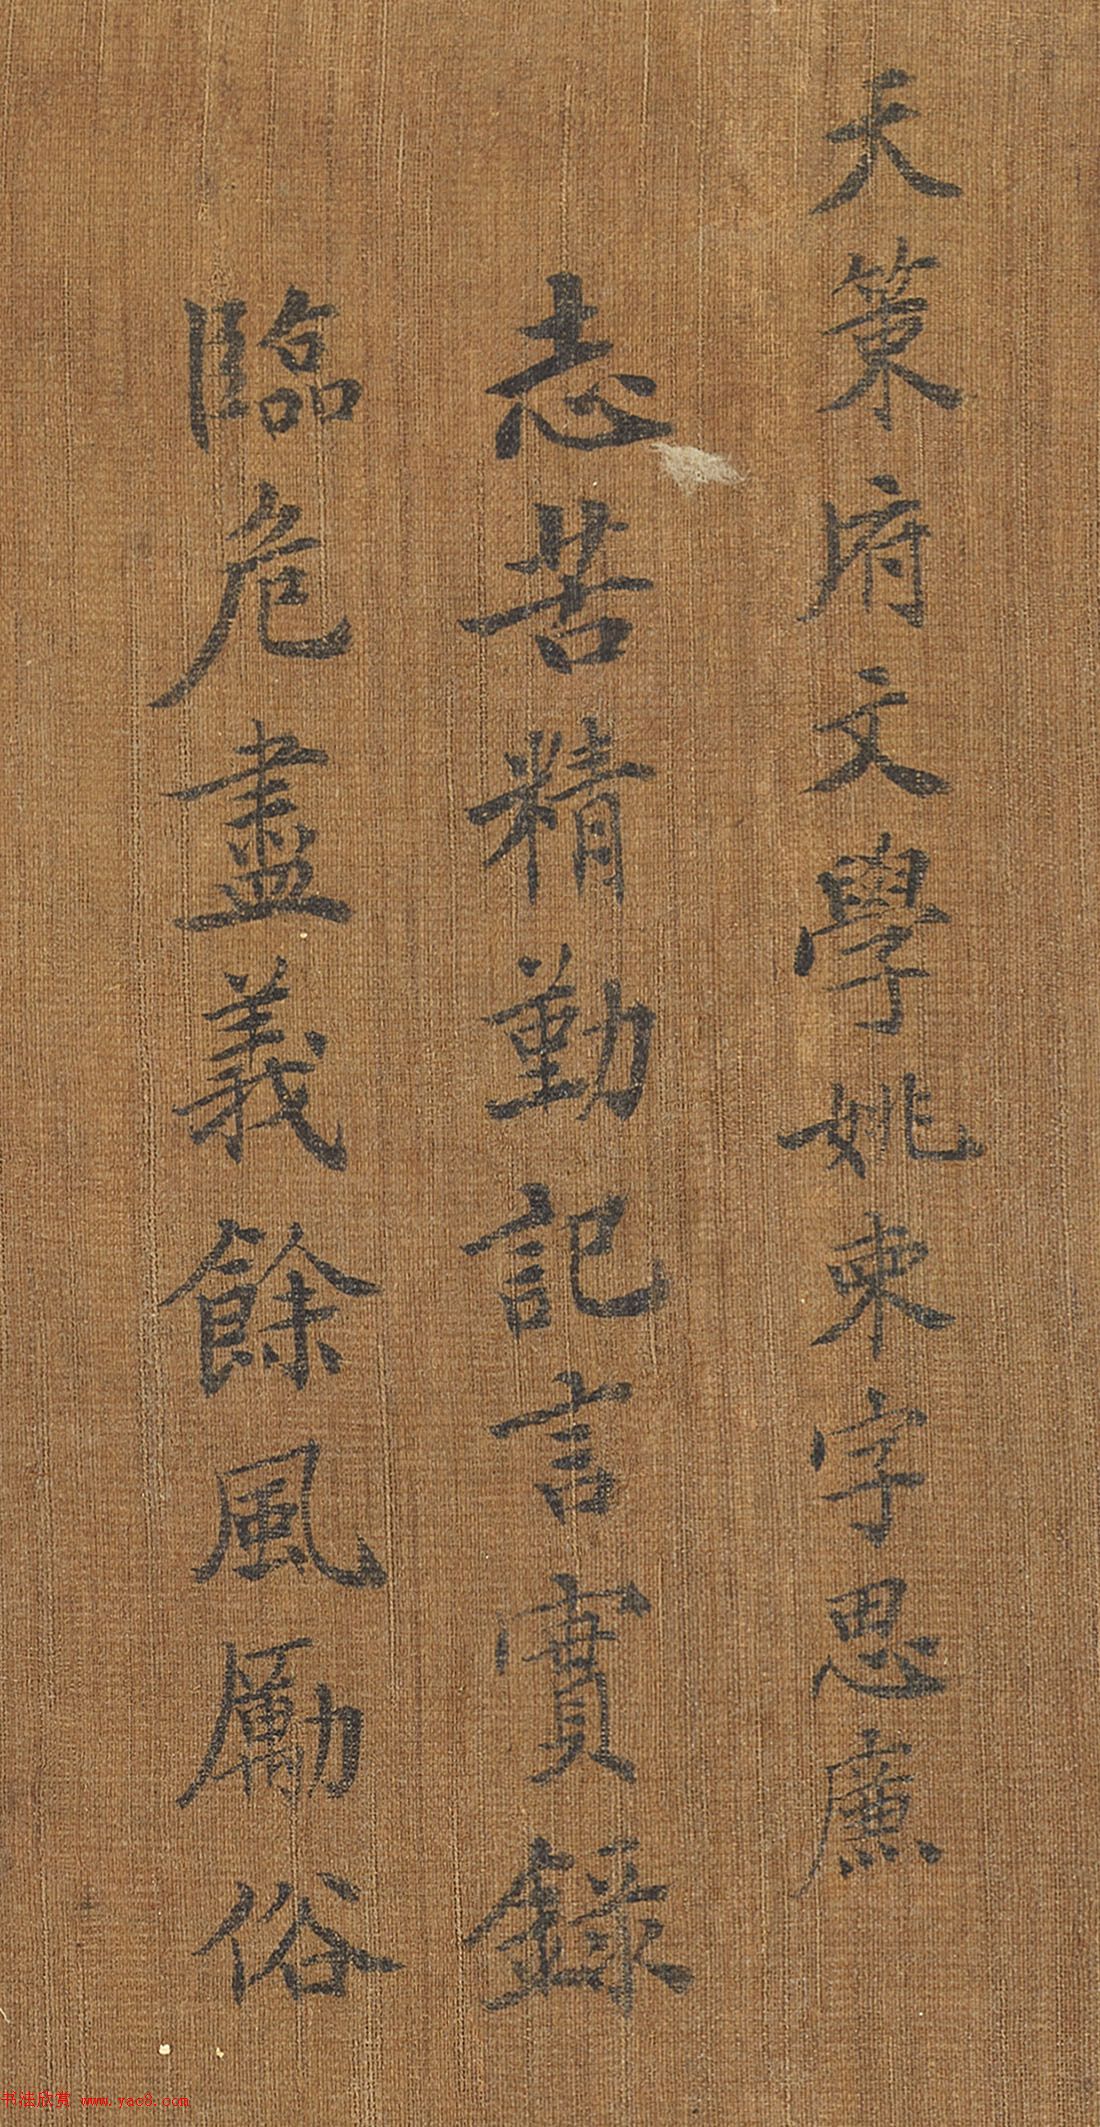 天策府文學姚柬字思廉
志苦精勤記言實錄
臨危盡義餘風勵俗
书法欣赏 www.yac8.com